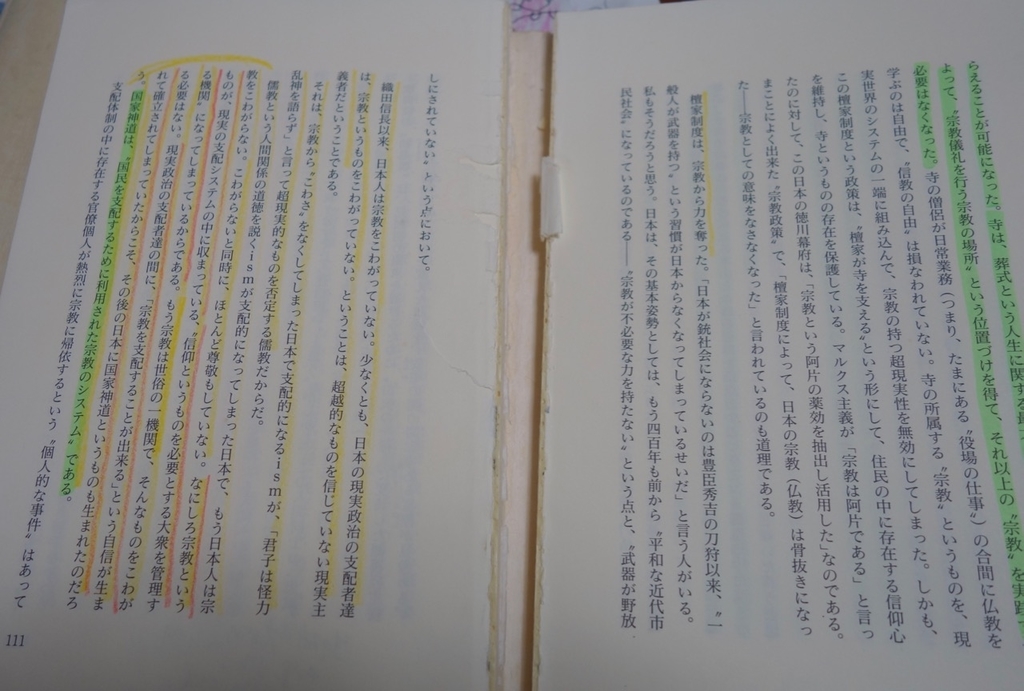 らえることが可能になった。寺は、葬式という人生に関する
よって、〝宗教儀礼を行う宗教の場所〟という位置づけを得て、それ以上の〝宗教〟を実践
必要はなくなった。寺の僧侶が日常業務（つまり、たまにある〝役場の仕事〟）の合間に仏教を
学ぶのは自由で、〝信教の自由〟は損なわれていない。寺の所属する〝宗教〟というものを、現
実世界のシステムの一端に組み込んで、宗教の持つ超現実性を無効にしてしまった。しかも、
この檀家制度という政策は、〝檀家が寺を支える〟という形にして、住民の中に存在する信仰心
を維持し、寺というものの存在を保護している。マルクス主義が「宗教は阿片である」と言っ
たのに対して、この日本の徳川幕府は、「宗教という阿片の薬効を抽出し活用した」なのである。
まことによく出来た〝宗教政策〟で、「檀家制度によって、日本の宗教（仏教）は骨抜きになっ
た――宗教としての意味をなさなくなった」と言われているのも道理である。
檀家制度は、宗教から力を奪った。「日本が銃社会にならないのは豊臣秀吉の刀狩以来、〝一
般人が武器を持つ〟という習慣が日本からなくなってしまっているせいだ」と言う人がいる。
私もそうだろうと思う。日本は、その基本姿勢としては、もう四百年も前から〝平和な近代市
民社会〟になっているのである――〝宗教が不必要な力を持たない〟という点と、〝武器が野放
しにされていない〟という点において。
織田信長以来、日本人は宗教をこわがっていない。少なくとも、日本の現実政治の支配者達
は、宗教というものをこわがっていない。ということは、超越的なものを信じていない現実主
義者だということである。
それは、宗教から〝こわさ〟をなくしてしまった日本で支配的になるismが、「君子は怪力
乱神を語らず」と言って超現実的なものを否定する儒教だからだ。
儒教という人間関係の道徳を説くismが支配的になってしまった日本で、もう日本人は宗
教をこわがらない。こわがらないと同時に、ほとんど尊敬もしていない。なにしろ宗教という
ものが、現実の支配システムの中に収まっている、〝信仰というものを必要とする大衆を管理す
る機関〟になってしまっているからである。もう宗教は世俗の一機関で、そんなものをこわが
る必要はない。現実政治の支配者達の間に、「宗教を支配することが出来る」という自信が生ま
れて確立されてしまっていたからこそ、その後の日本に国家神道というものも生まれたのだろ
う。国家神道は、〝国民を支配するために利用された宗教のシステム〟である。
支配体制の中に存在する官僚個人が熱烈に宗教に帰依するという〝個人的な事件〟はあって
111